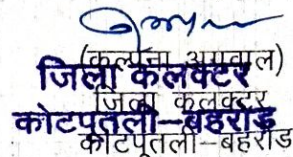 (कल्पना अग्रवाल)
जिला कलक्टर
जिला कलक्टर
कोटपूतली–बहरोड़
कोटपूतली–बहरोड़